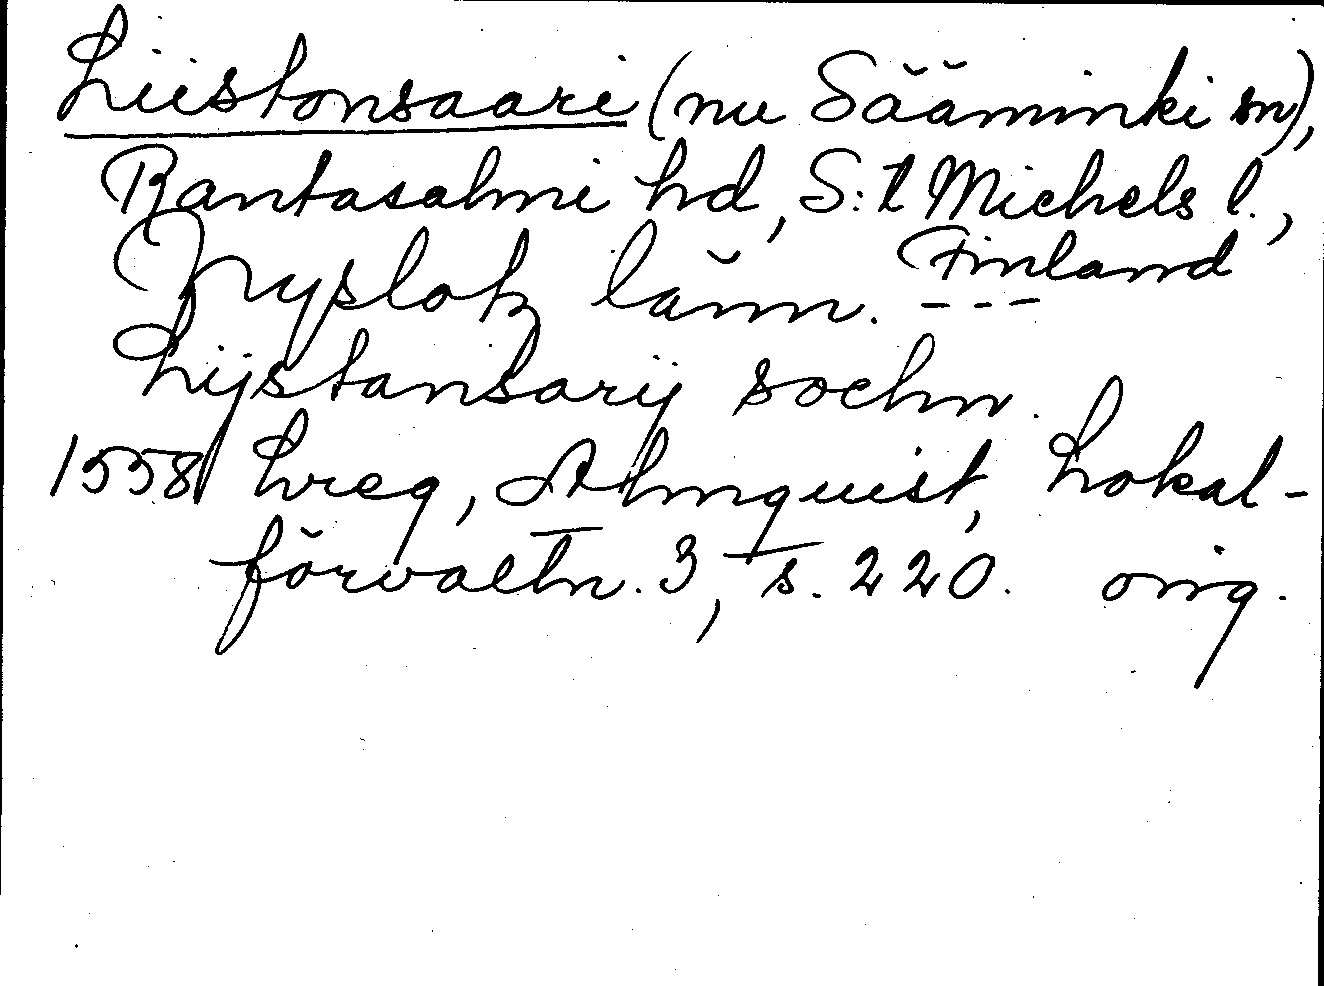 Liistonsaari (nu Sääminki sn),
Rantasalmi hd, S:t Michels l.,
Finland
Nyslotz länn. ---
Lijstansarij sochn.
1558 Lreg, Almquist, Lokal-
förvaltn. 3, s. 220. orig.